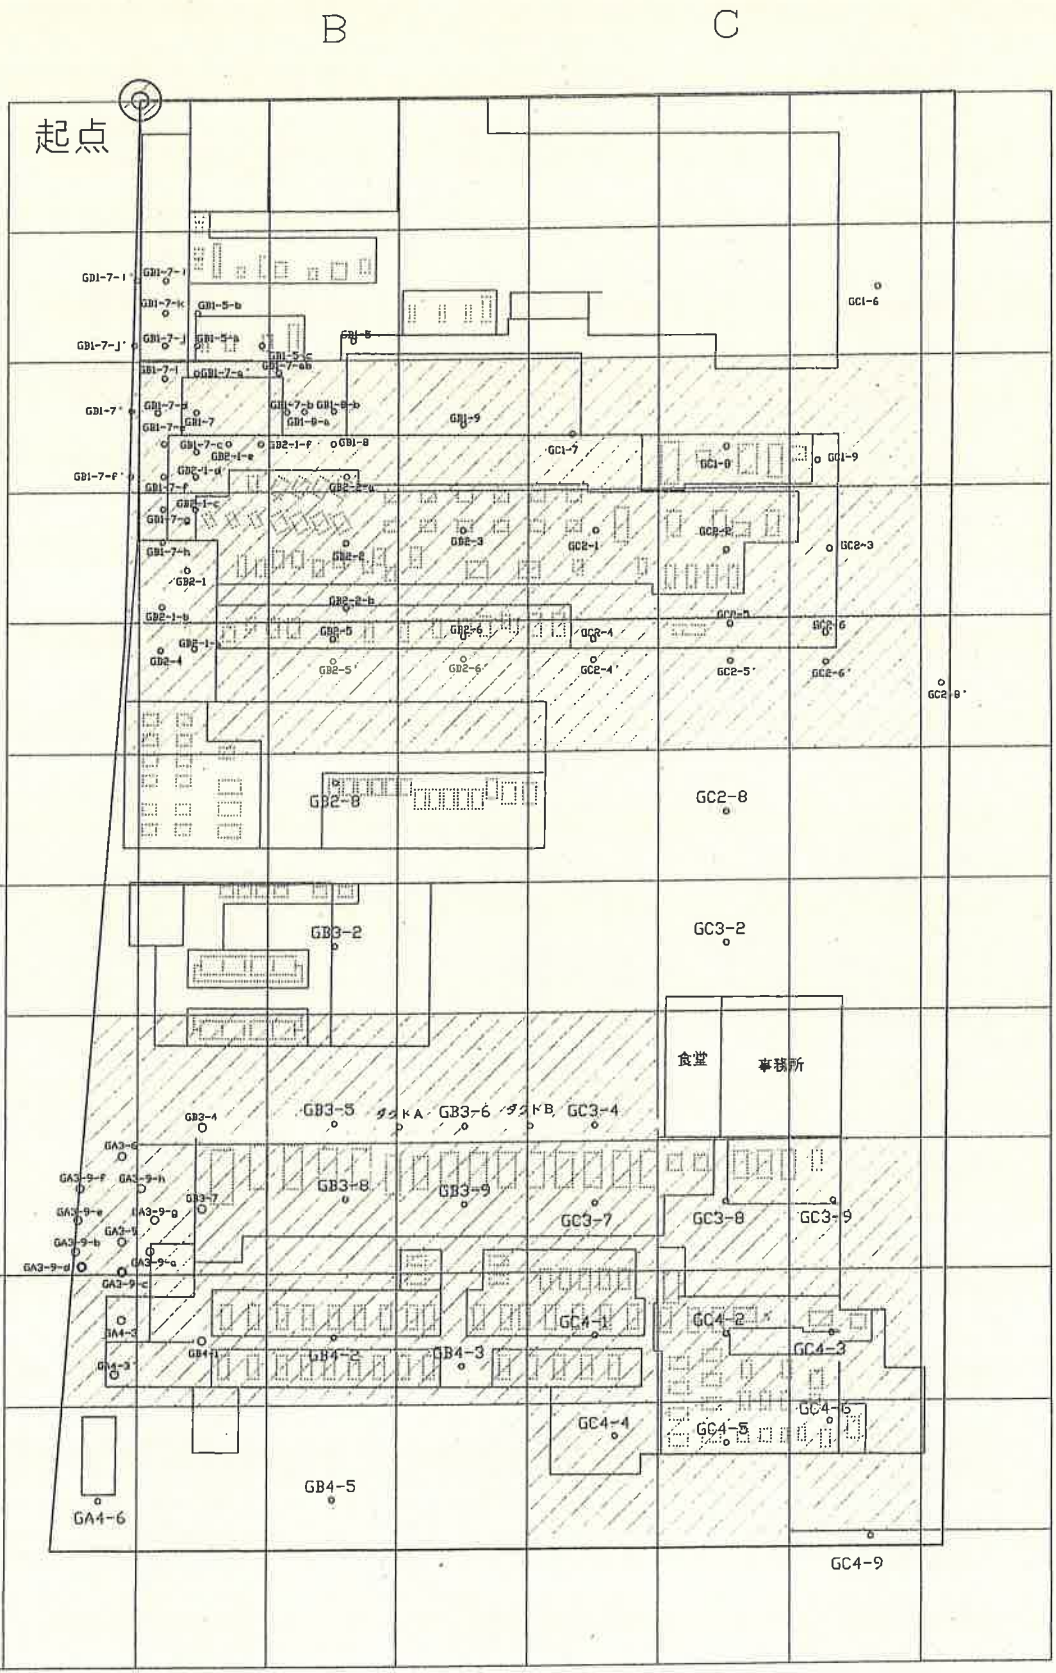 B
C
起点
GB1-7-i
GC1-6
GB1-7-k
GB1-5-b
GB1-7-j'
GB1-7-j
GB1-5-a
GB1-5
GB1-5-c
GB1-7-a'
GB1-7-ab
GB1-7'
GB1-7-d
GB1-7
GB1-7-b
GB1-8-b
GB1-8-a
GB1-9
GB1-7-e
GB1-7-c
GB2-1-f
GB1-8
GB2-1-e
GC1-7
GC1-8
GC1-9
GB1-7-f'
GB2-1-d
GB1-7-f
GB2-2-a
GB2-1-c
GB1-7-g
GB2-3
GC2-1
GC2-2
GC2-3
GB1-7-h
GB2-2
GB2-1
GB2-2-b
GB2-1-b
GC2-5
GB2-5
GB2-6
GC2-4
GC2-6
GB2-1-a
GB2-4
GB2-5'
GB2-6'
GC2-4'
GC2-5'
GC2-6'
GC2-8
GB2-8
GB3-2
GC3-2
食堂
事務所
GB3-4
GB3-5
ダクトA
GB3-6
ダクトB
GC3-4
GA3-6
GA3-9-f
GA3-9-h
GB3-7
GB3-8
GB3-9
GC3-7
GC3-8
GC3-9
GA3-9-e
GA3-9-g
GA3-9-b
GA3-9-a
GA3-9-d
GA3-9-c
GA4-3
GB4-1
GB4-2
GB4-3
GC4-1
GC4-2
GC4-3
GA4-3
GC4-4
GC4-5
GC4-6
GB4-5
GA4-6
GC4-9